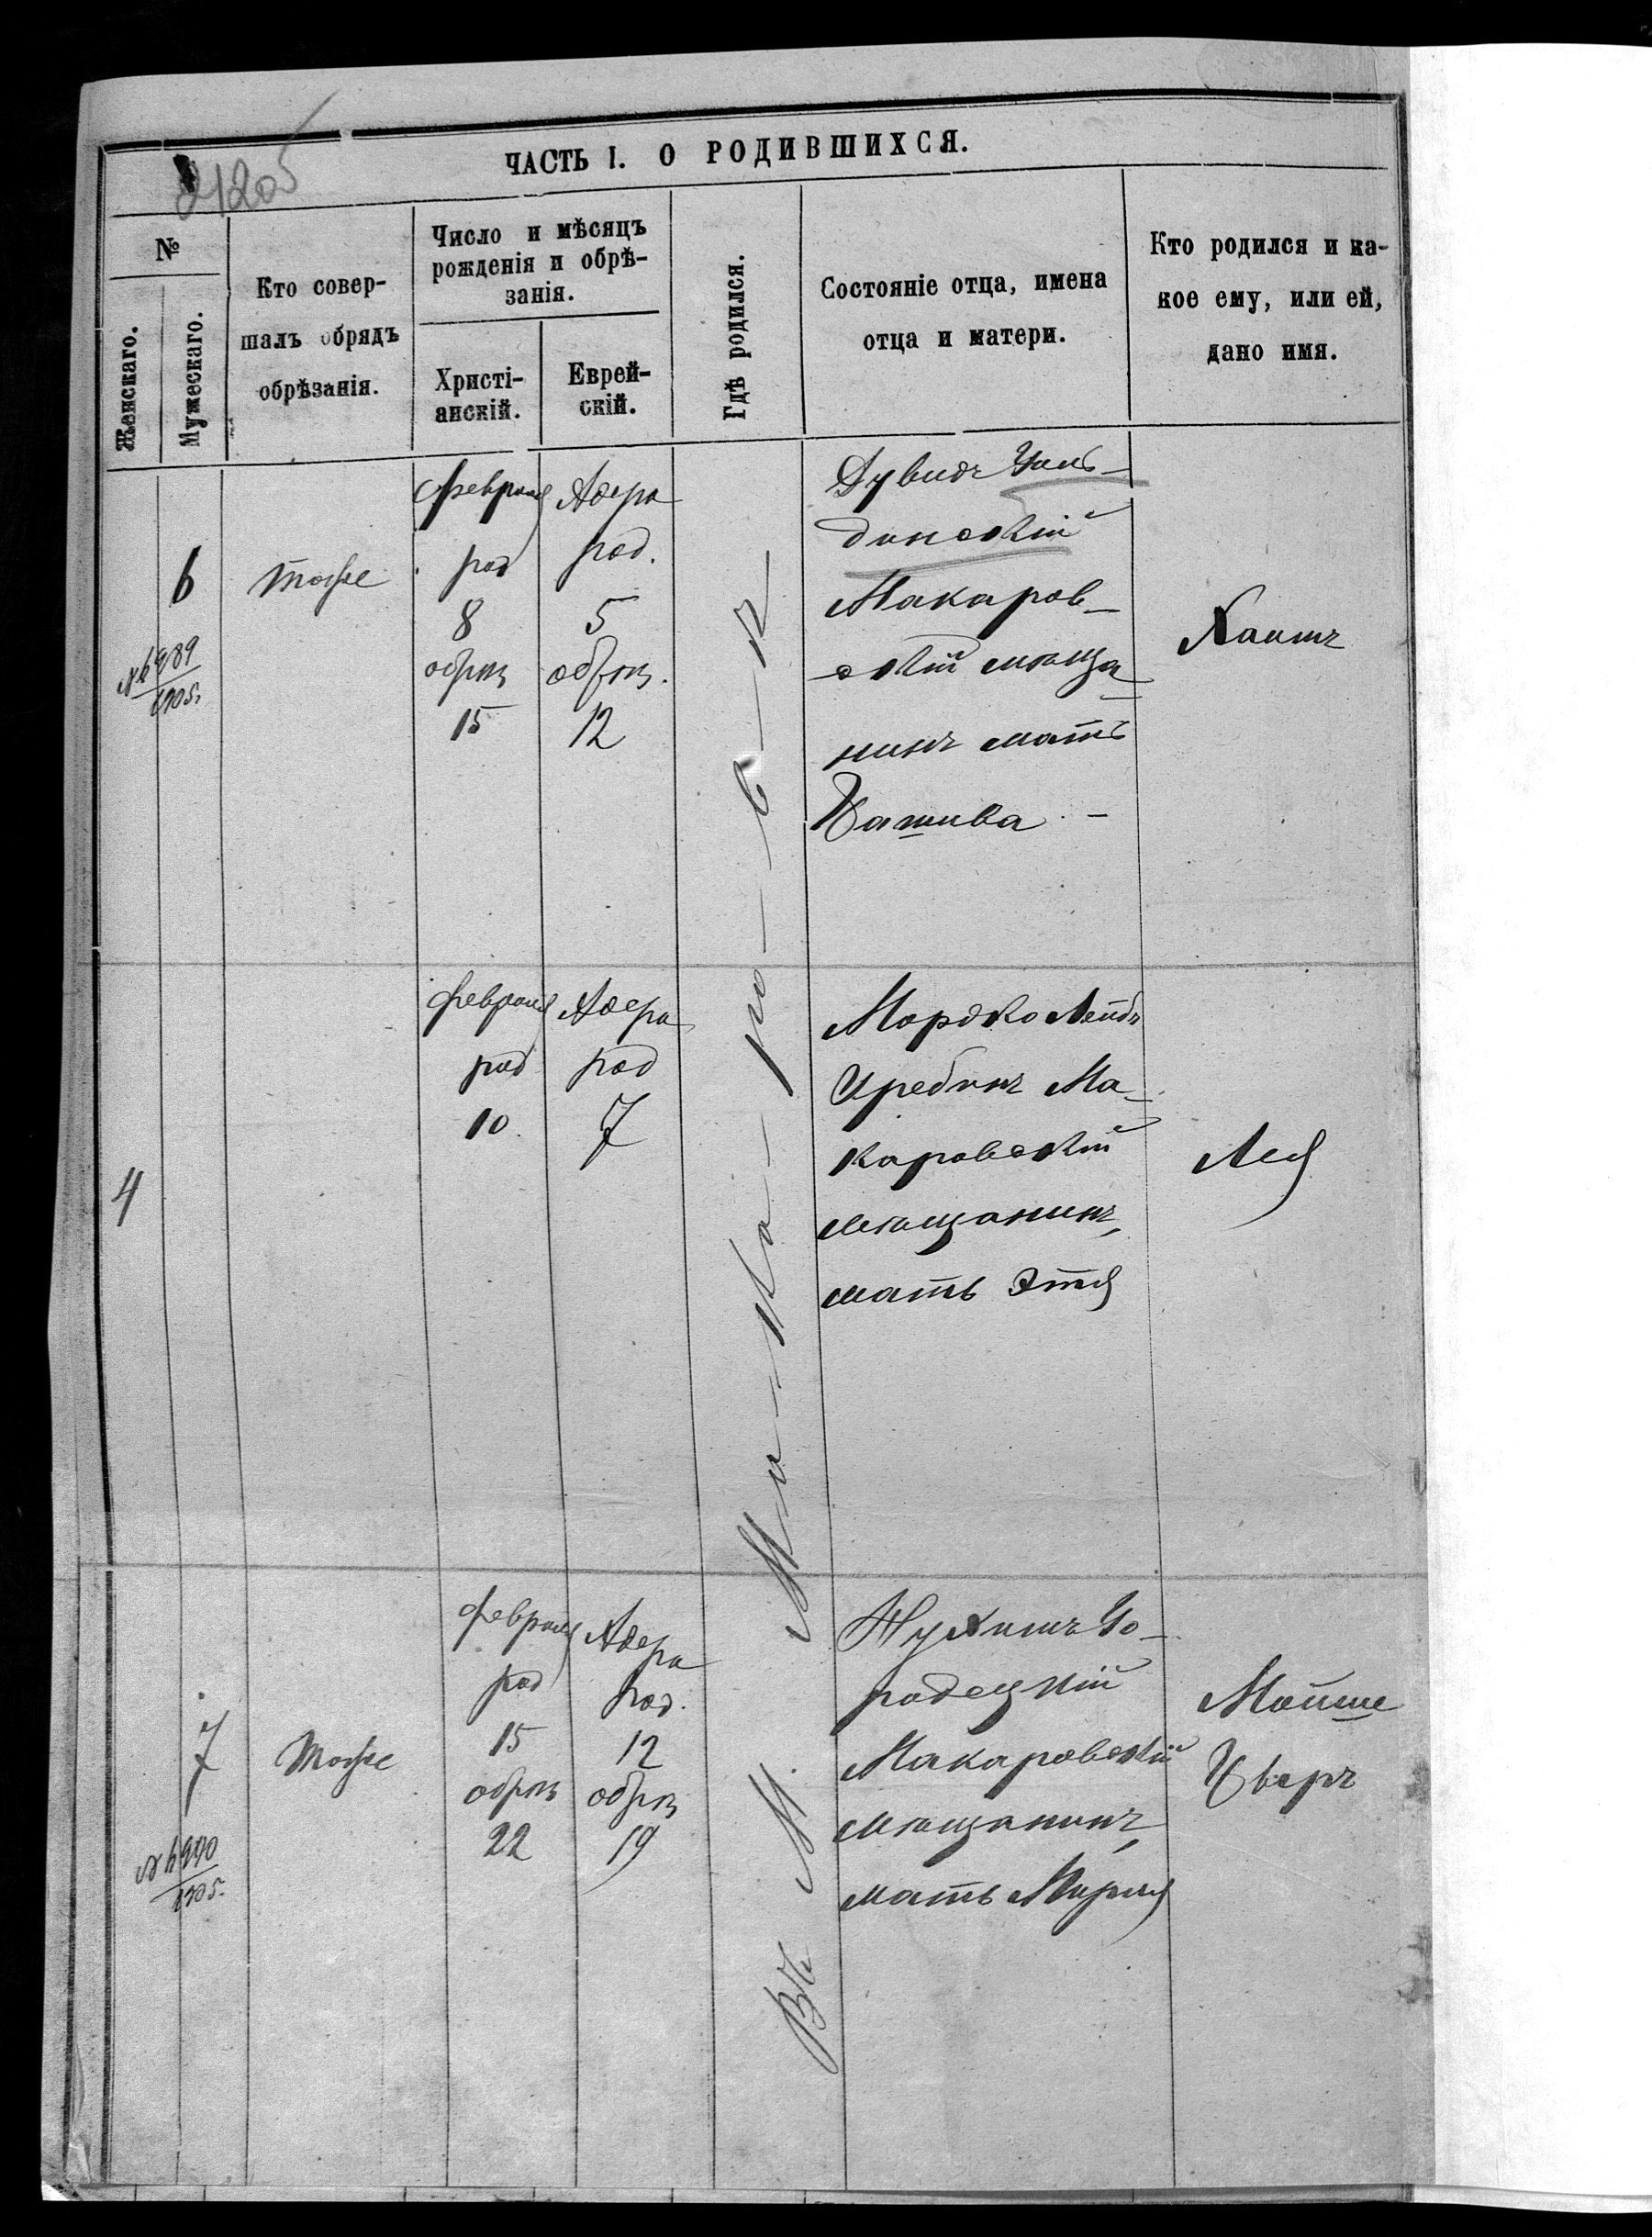 ЧАСТЬ I. О РОДИВШИХСЯ.
№
Женскаго.
Мужескаго.
Кто совер-
шалъ обрядъ
обрѣзанія.
Число и мѣсяцъ
рожденія и обрѣ-
занія.
Христі-
анскій.
Еврей-
скій.
Гдѣ родился.
Состояніе отца, имена
отца и матери.
Кто родился и ка-
кое ему, или ей,
дано имя.
6
тоже
Февраля
род
8
обрѣз
15
Адера
род.
5
обрѣз.
12
Въ М. Ма-ка-ро-в-ѣ
Дувидъ
динскій
Макаров-
скій мѣща-
нинъ мать
Хаимъ
4
Февраля
род
10.
Адера
род
7
Мордко Лейбъ
Гребинъ Ма-
каровскій
мѣщанинъ,
мать Этя
Лея
7
Тоже
Февраля
род
15
обрѣз
22
Адера
род.
12
обрѣз
19
Нухимъ Го-
родецкій
Макаровскій
мѣщанинъ,
мать Мирля
Мойше